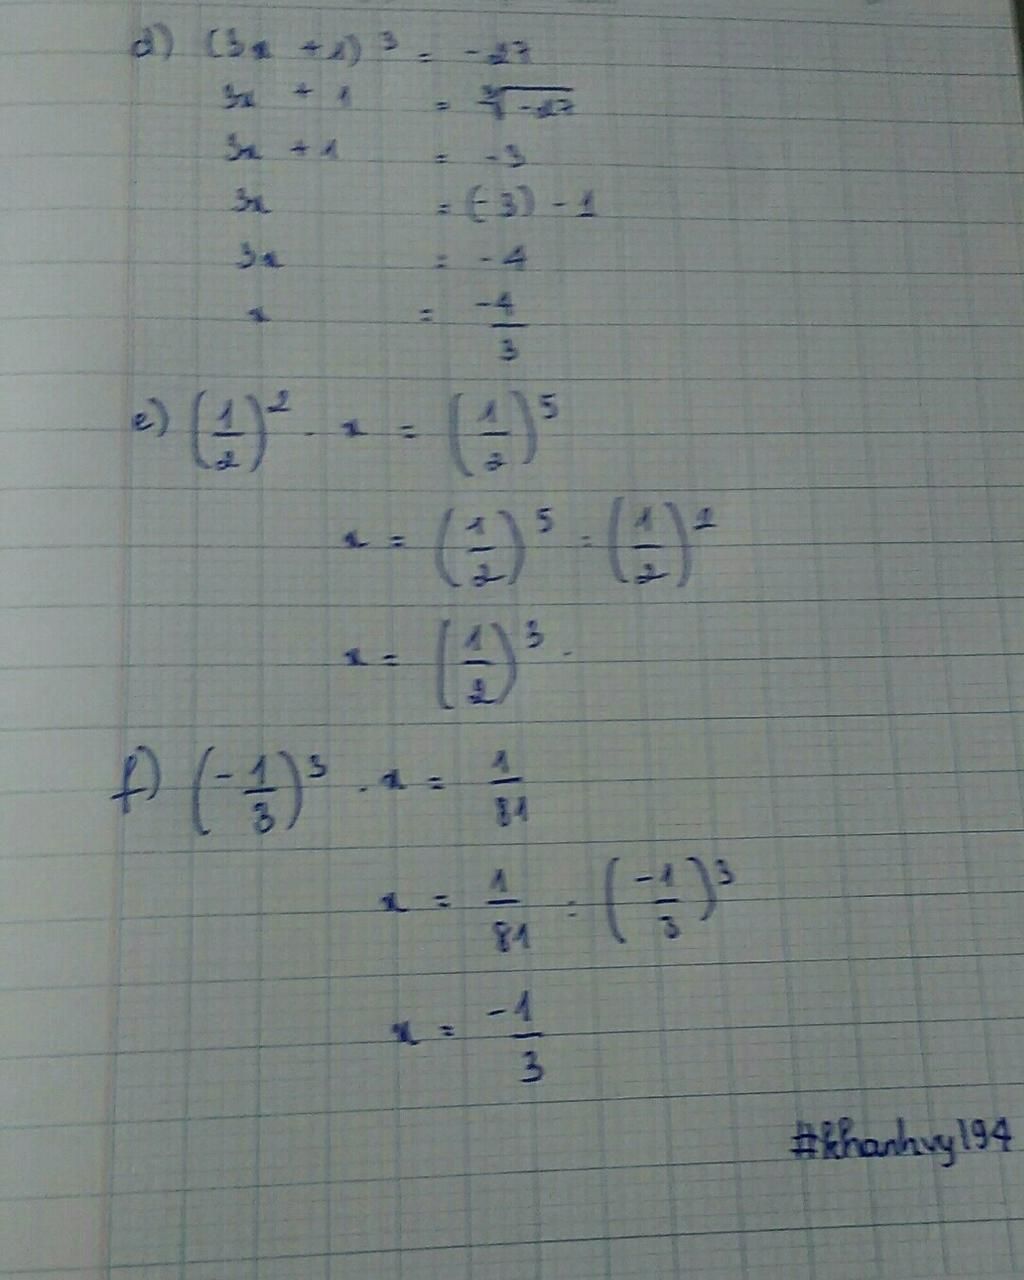 d) (3x + 1)³ = -27
3x + 1 = ∛-27
3x + 1 = -3
3x = (-3) - 1
3x = -4
x = -4/3
e) (1/2)² . x = (1/2)⁵
x = (1/2)⁵ : (1/2)²
x = (1/2)³.
f) (-1/3)³ . x = 1/81
x = 1/81 : (-1/3)³
x = -1/3
#khanhvy194